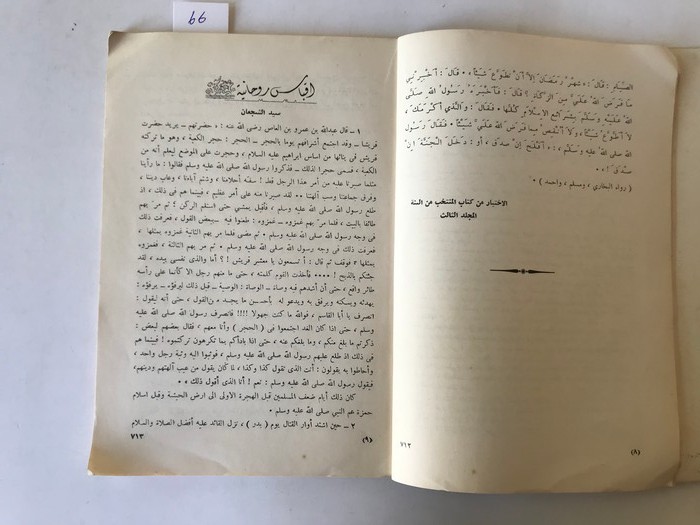 66
الصيام : قال : « شهر رمضان إلا أن تطوع شيئا » . قال : أخبرني
ما فرض الله علي من الزكاة ؟ قال : فأخبره رسول الله صلى
الله عليه وسلم بشرائع الاسلام كلها . فقال : والذي أكرمك ،
لا أتطوع شيئا ولا أنقص مما فرض الله علي شيئا . فقال رسول
الله صلى الله عليه وسلم : « أفلح إن صدق ، أو : دخل الجنة إن
صدق » .
( رواه البخاري ، ومسلم ، واحمد ) .
الاختيار من كتاب المنتخب من السنة
المجلد الثالث
٧١٢
(٨)
اقباس روحانية
سيد الشجعان
١ ــ قال عبدالله بن عمرو بن العاص رضى الله عنه : « حضرتهم ــ يريد حضرت
قريشا ــ وقد اجتمع أشرافهم يوما بالحجر ــ الحجر : حجر الكعبة ، وهو ما تركته
قريش فى بنائها من اساس ابراهيم عليه السلام ، وحجرت على الموضع ليعلم أنه من
الكعبة ، فسمى حجرا لذلك ــ فذكروا رسول الله صلى الله عليه وسلم فقالوا : ما رأينا
مثلما صبرنا عليه من أمر هذا الرجل قط ! سفه أحلامنا ، وشتم آباءنا ، وعاب ديننا ،
وفرق جماعتنا وسب آلهتنا .. لقد صبرنا منه على أمر عظيم ، فبينما هم فى ذلك ، اذ
طلع رسول الله صلى الله عليه وسلم ، فأقبل يمشي حتى استلم الركن ؟ ثم مر بهم
طائفا بالبيت ، فلما مر بهم غمزوه ــ غمزوه : طعنوا فيه ــ ببعض القول ، فعرفت ذلك
فى وجه رسول الله صلى الله عليه وسلم . ثم مضى فلما مر بهم الثانية غمزوه بمثلها ،
فعرفت ذلك فى وجه رسول الله صلى الله عليه وسلم . ثم مر بهم الثالثة ، فغمزوه
بمثلها ، فوقف ثم قال : أتسمعون يا معشر قريش ! ؟ أما والذى نفسى بيده ، لقد
جئتكم بالذبح ! .... فأخذت القوم كلمته ، حتى ما منهم رجل الا كأنما على رأسه
طائر واقع ، حتى أن أشدهم فيه وصاة ــ الوصاة : الوصية ــ قبل ذلك ليرفؤه ــ يرفؤه :
يهدئه ويسكنه ويرفق به ويدعو له ــ بأحسن ما يجد من القول ، حتى أنه ليقول :
انصرف يا أبا القاسم ، فوالله ما كنت جهولا !!!! فانصرف رسول الله صلى الله عليه
وسلم ، حتى اذا كان الغد اجتمعوا فى ( الحجر ) وأنا معهم ، فقال بعضهم لبعض :
ذكرتم ما بلغ منكم ، وما بلغكم عنه ، حتى اذا بادأكم بما تكرهون تركتموه ! فبينما هم
فى ذلك اذ طلع عليهم رسول الله صلى الله عليه وسلم ، فوثبوا اليه وثبة رجل واحد ،
وأحاطوا به يقولون : أنت الذى تقول كذا وكذا ، لما كان يقول من عيب آلهتهم ودينهم ،
فيقول رسول الله صلى الله عليه وسلم : نعم ! أنا الذى أقول ذلك » .
كان ذلك أيام ضعف المسلمين قبل الهجرة الاولى الى ارض الحبشة وقبل اسلام
حمزة عم النبي صلى الله عليه وسلم .
٢ ــ حين اشتد أوار القتال يوم ( بدر ) ، نزل القائد عليه أفضل الصلاة والسلام
٧١٣
(٩)